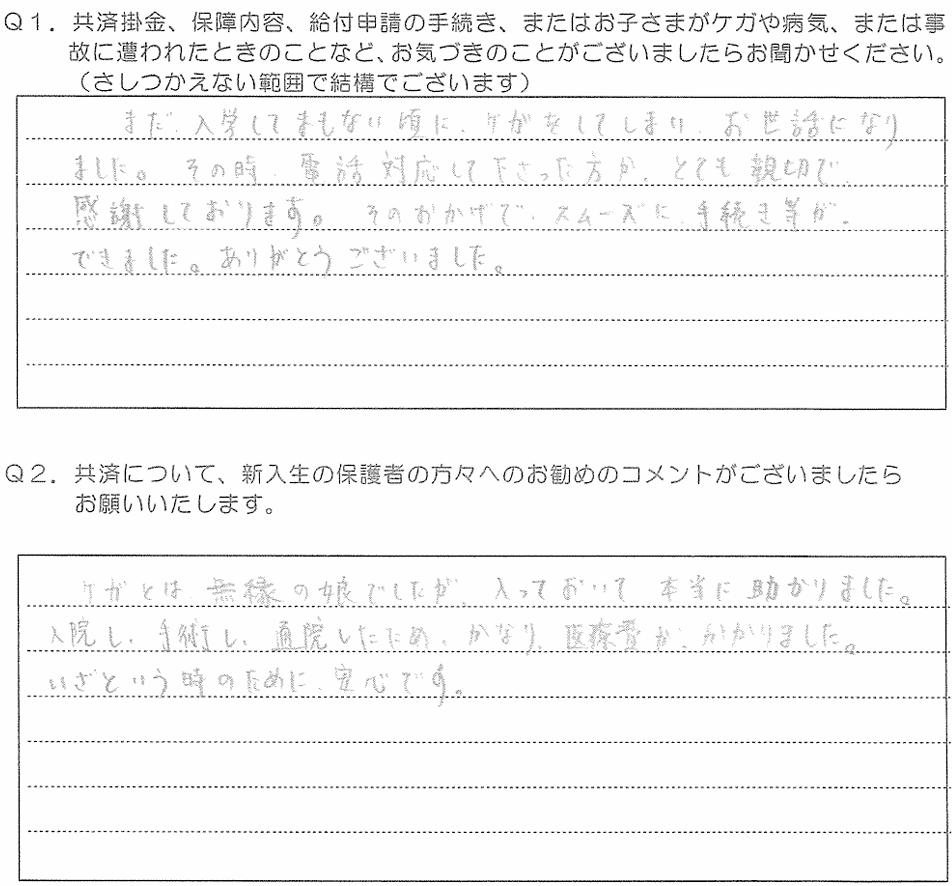 Q1．共済掛金、保障内容、給付申請の手続き、またはお子さまがケガや病気、または事
故に遭われたときのことなど、お気づきのことがございましたらお聞かせください。
（さしつかえない範囲で結構でございます）
まだ、入学してまもない頃に、ケガをしてしまい、お世話になり
ました。その時、電話対応して下さった方が、とても親切で、
感謝しております。そのおかげで、スムーズに、手続き等が、
できました。ありがとうございました。
Q2．共済について、新入生の保護者の方々へのお勧めのコメントがございましたら
お願いいたします。
ケガとは、無縁の娘でしたが、入っておいて本当に助かりました。
入院し、手術し、通院したため、かなり、医療費が、かかりました。
いざという時のために、安心です。